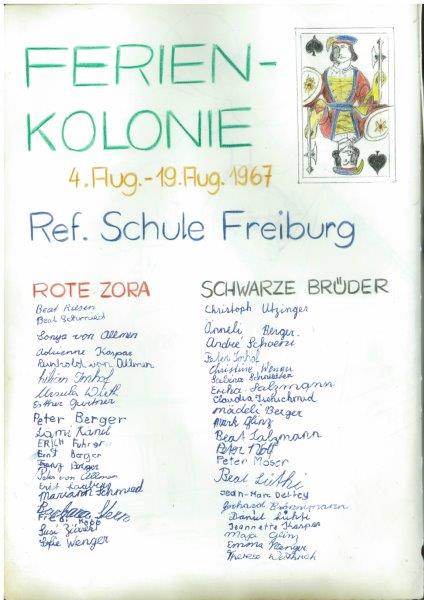 FERIEN-
KOLONIE
4. Aug. - 19. Aug. 1967
Ref. Schule Freiburg
ROTE ZORA
Beat Riesen
Beat Schmied
Sonya von Allmen
Adrienne Kaspar
Reinhold von Allmen
Lilian Imhof
Ursula Wirth
Esther Gurtner
Peter Berger
ERICH Fuhrer
Ernst Berger
Franz Berger
Peter von Allmen
Mariann Schmied
Barbara
Fredi Kopp
Susi Zürrer
Sofie Wenger
SCHWARZE BRÜDER
Christoph Utzinger
Anneli Berger
André Schweizer
Peter Imhof
Christine Wenger
Sabina Schneider
Erika Salzmann
Claudia
Mädeli Berger
Mark Glinz
Beat Salzmann
Peter Nolf
Peter Moser
Beat Lüthi
Jean-Marc
Gerhard Brönnimann
Daniel Lüthi
Jeannette Kaspar
Maja Glinz
Emma Wenger
Therese